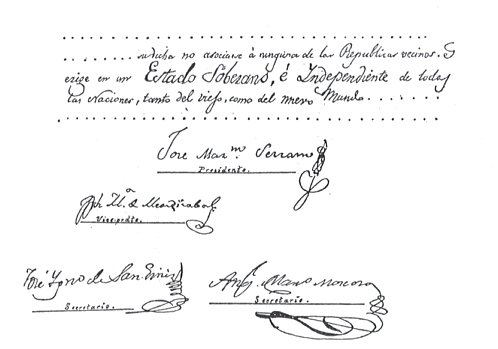 su dicha no asociarse à ninguna de las Republicas vecinas. S
erige en un Estado Soberano, é Independiente de todas
las Naciones, tanto del viejo, como del nuevo Mundo
Jose Mar.no Serrano
Presidente.
J.ph M.a de Mendizabal
Vice-pdte.
José Ygno de San Ginés
Secretario.
Ang. Man.o Moscoso
Secretario.